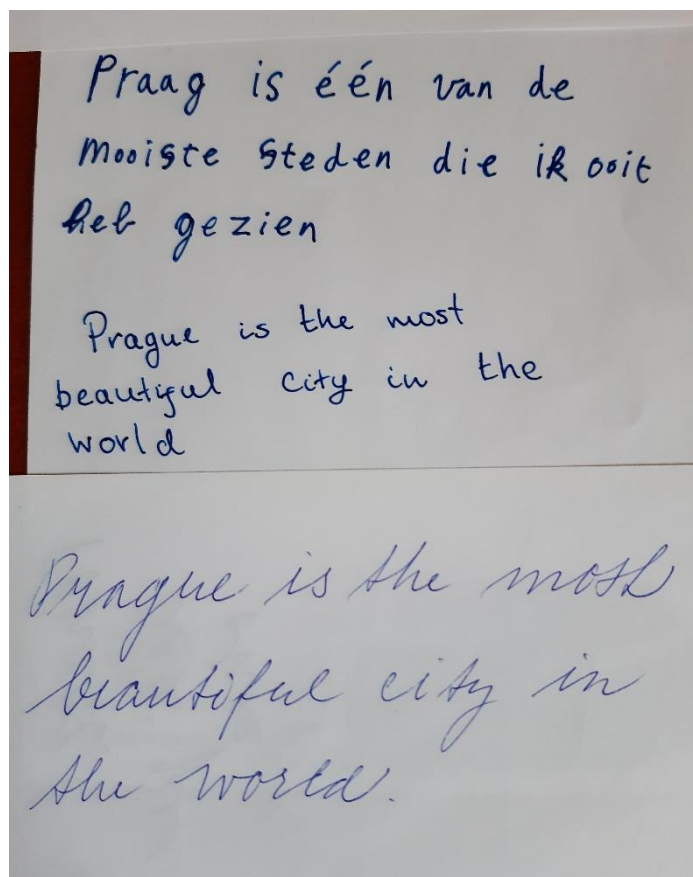 Praag is één van de
mooiste steden die ik ooit
heb gezien
Prague is the most
beautiful city in the
world
Prague is the most
beautiful city in
the world.